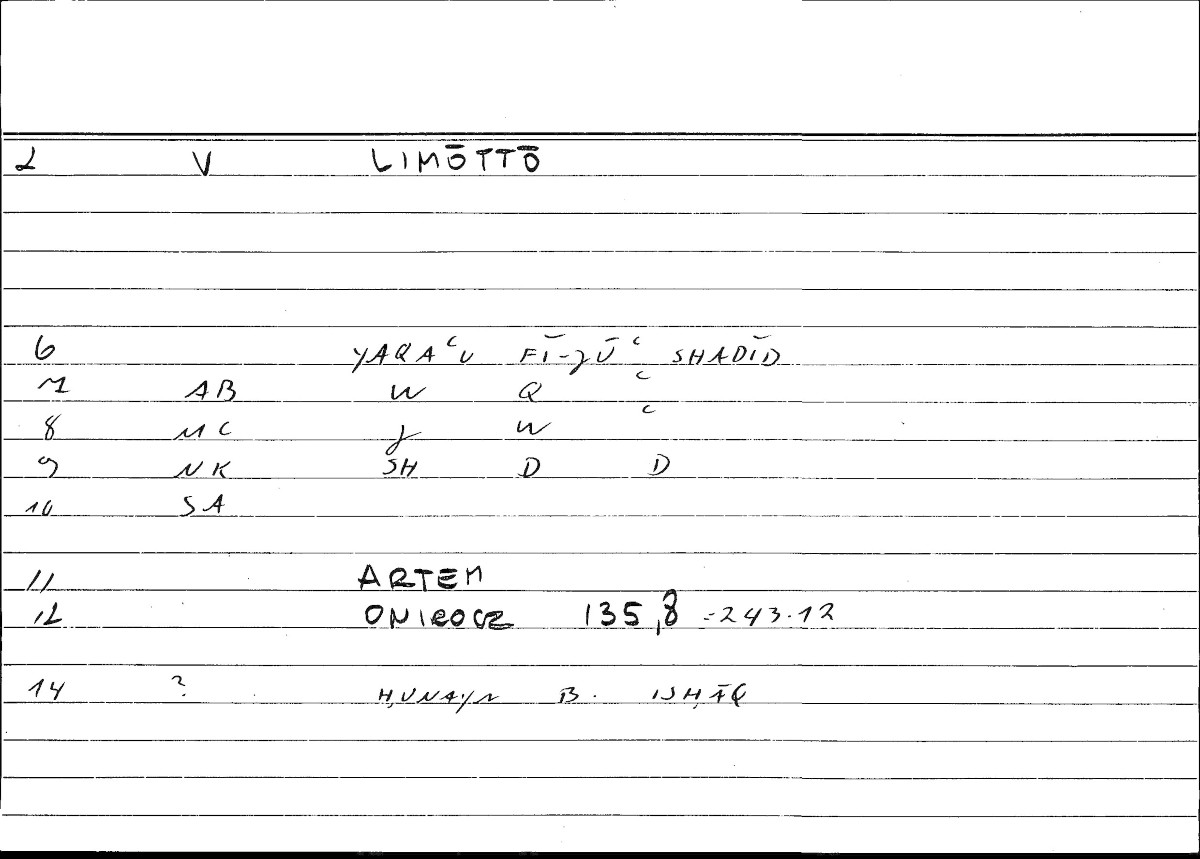 2 V LIMŌTTŌ
6 YAQAʿU FĪ-ǦŪʿ SHADĪD
7 AB W Q ʿ
8 MC Ǧ W ʿ
9 NK SH D D
10 SA
11 ARTEM
12 ONIROCR 135,8 =243.12
14 ? ḤUNAYN B. ISḤĀQ